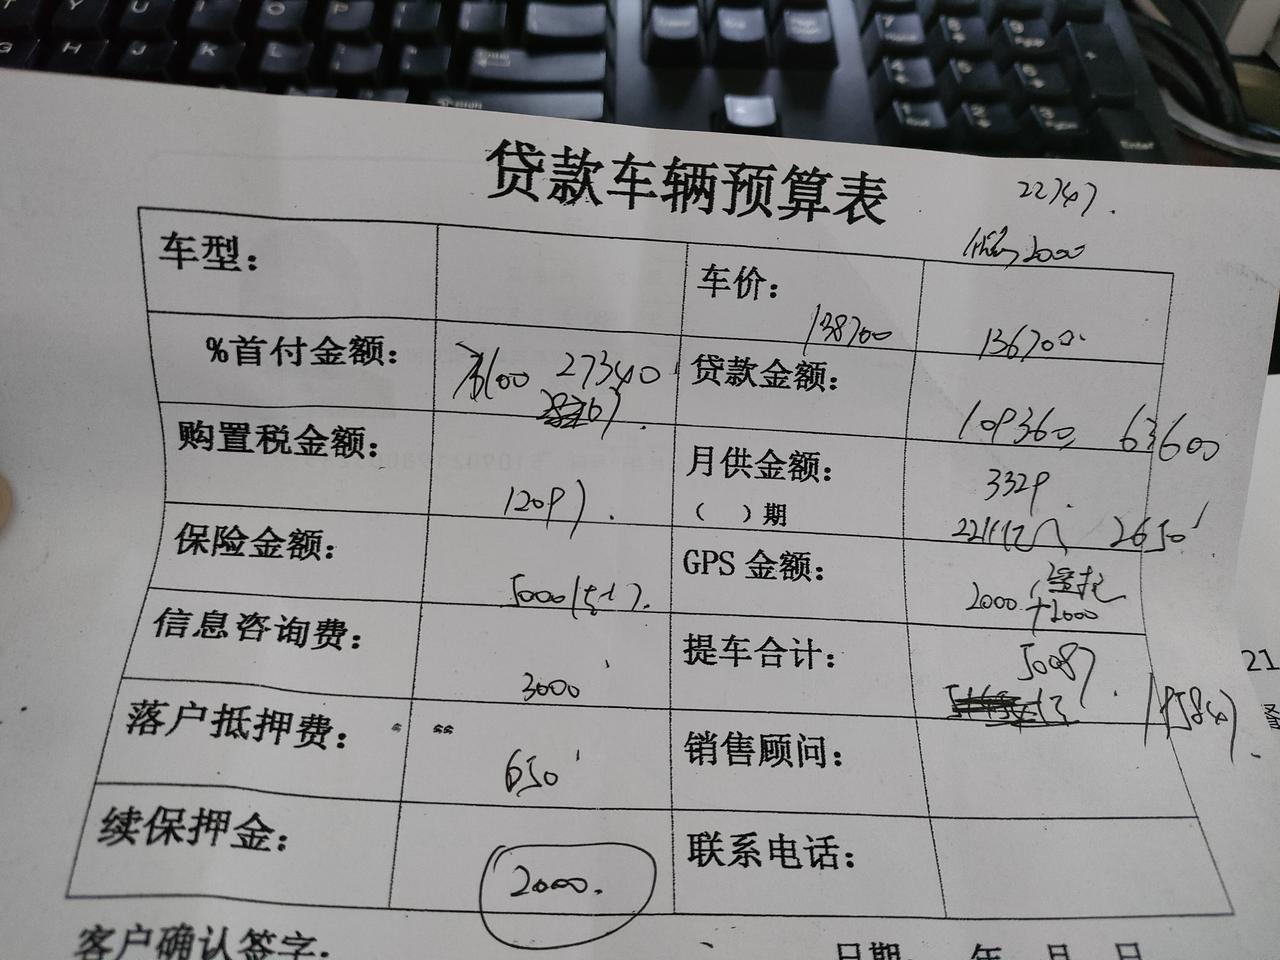 贷款车辆预算表
22747.
2000
车型：
车价：
138700
136700
%首付金额：
27340
贷款金额：
109360
63600
购置税金额：
12097.
月供金额：
（ ）期
3329.
2650
保险金额：
5000
GPS 金额：
2000
+2000
信息咨询费：
3000
提车合计：
50087.
落户抵押费：
650
销售顾问：
续保押金：
2000.
联系电话：
客户确认签字：
日期： 年 月 日
21